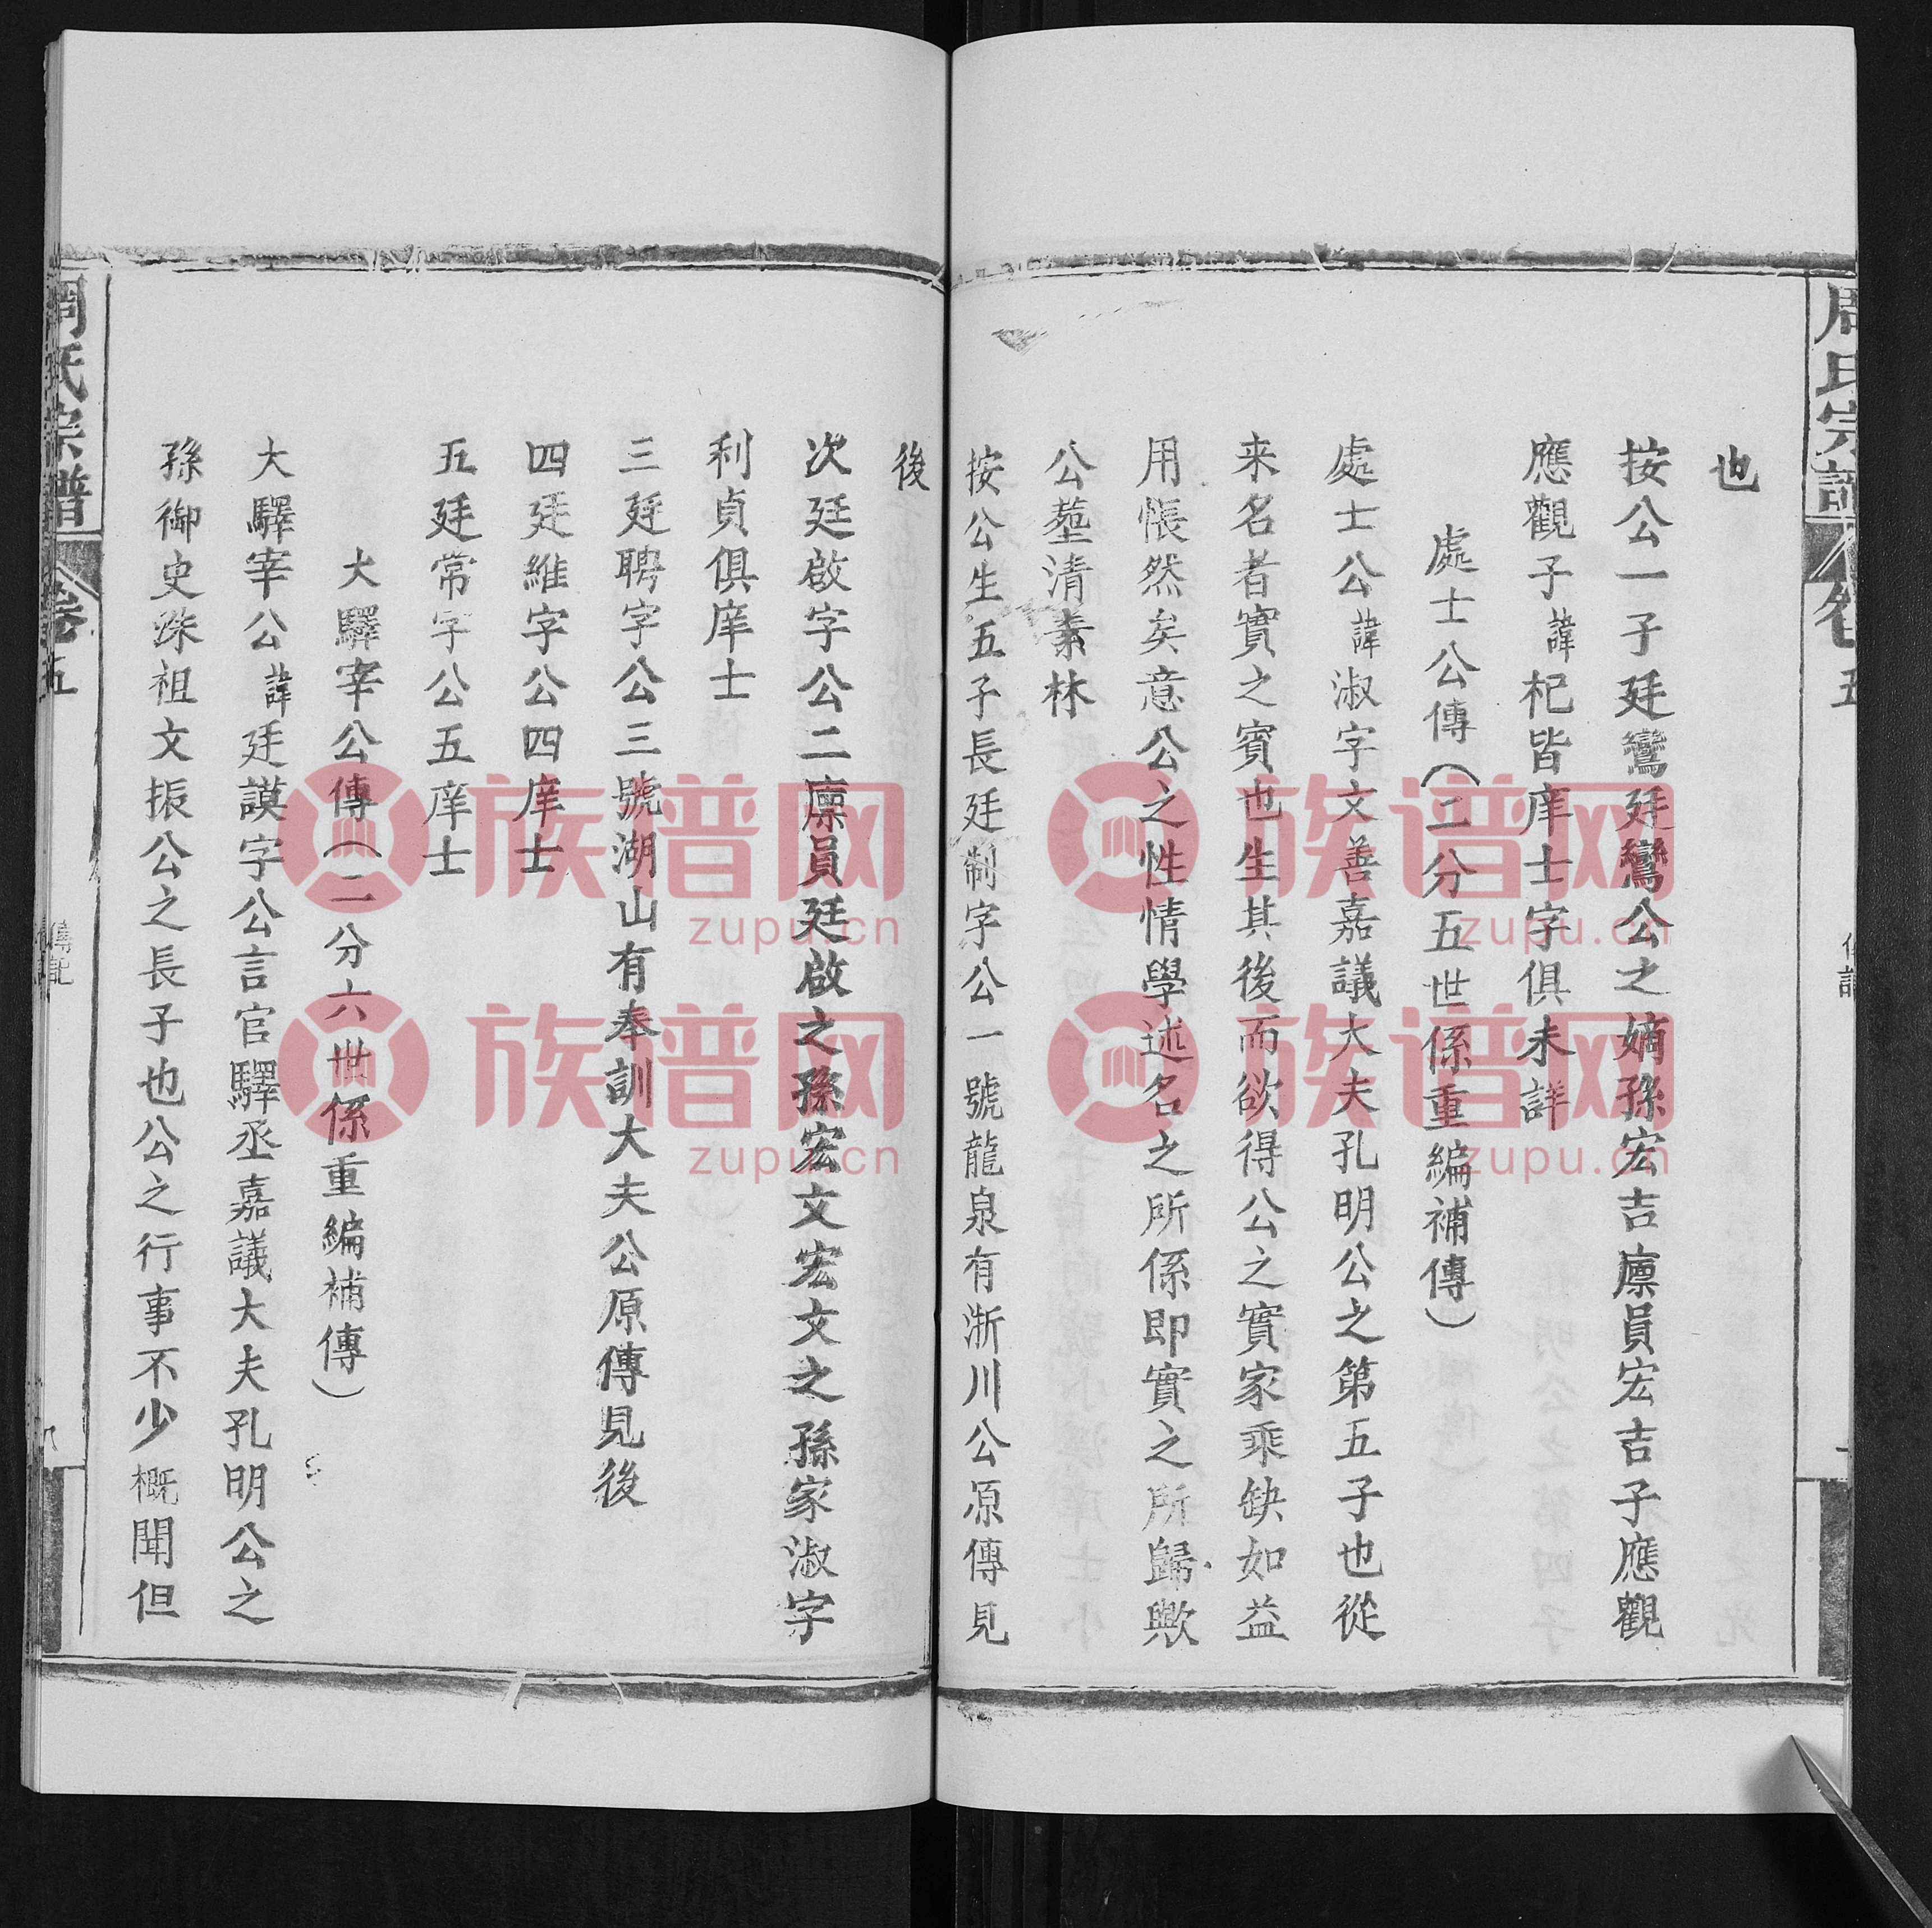 也
按公一子廷鸞廷鸞公之嫡孫宏吉廪員宏吉子應觀
應觀子諱杞皆庠士字俱未詳
處士公傳（二分五世係重編補傳）
處士公諱淑字文善嘉議大夫孔明公之第五子也從
来名者實之賓也生其後而欲得公之實家乘缺如益
用悵然矣意公之性情學述名之所係即實之所歸歟
公塟清素林
按公生五子長廷制字公一號龍泉有淅川公原傳見
後
次廷啟字公二廪員廷啟之孫宏文宏文之孫家淑字
利貞俱庠士
三廷聘字公三號湖山有奉訓大夫公原傳見後
四廷維字公四庠士
五廷常字公五庠士
大驛宰公傳（二分六世係重編補傳）
大驛宰公諱廷謨字公言官驛丞嘉議大夫孔明公之
孫御史洙祖文振公之長子也公之行事不少概聞但
周氏宗譜
卷五
傳記
族谱网
zupu.cn
族谱网
zupu.cn
族谱网
zupu.cn
族谱网
zupu.cn